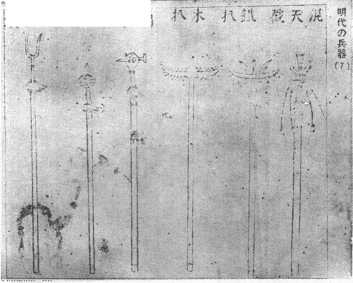 明代の兵器
(7)
混天截
鐵扒
木扒